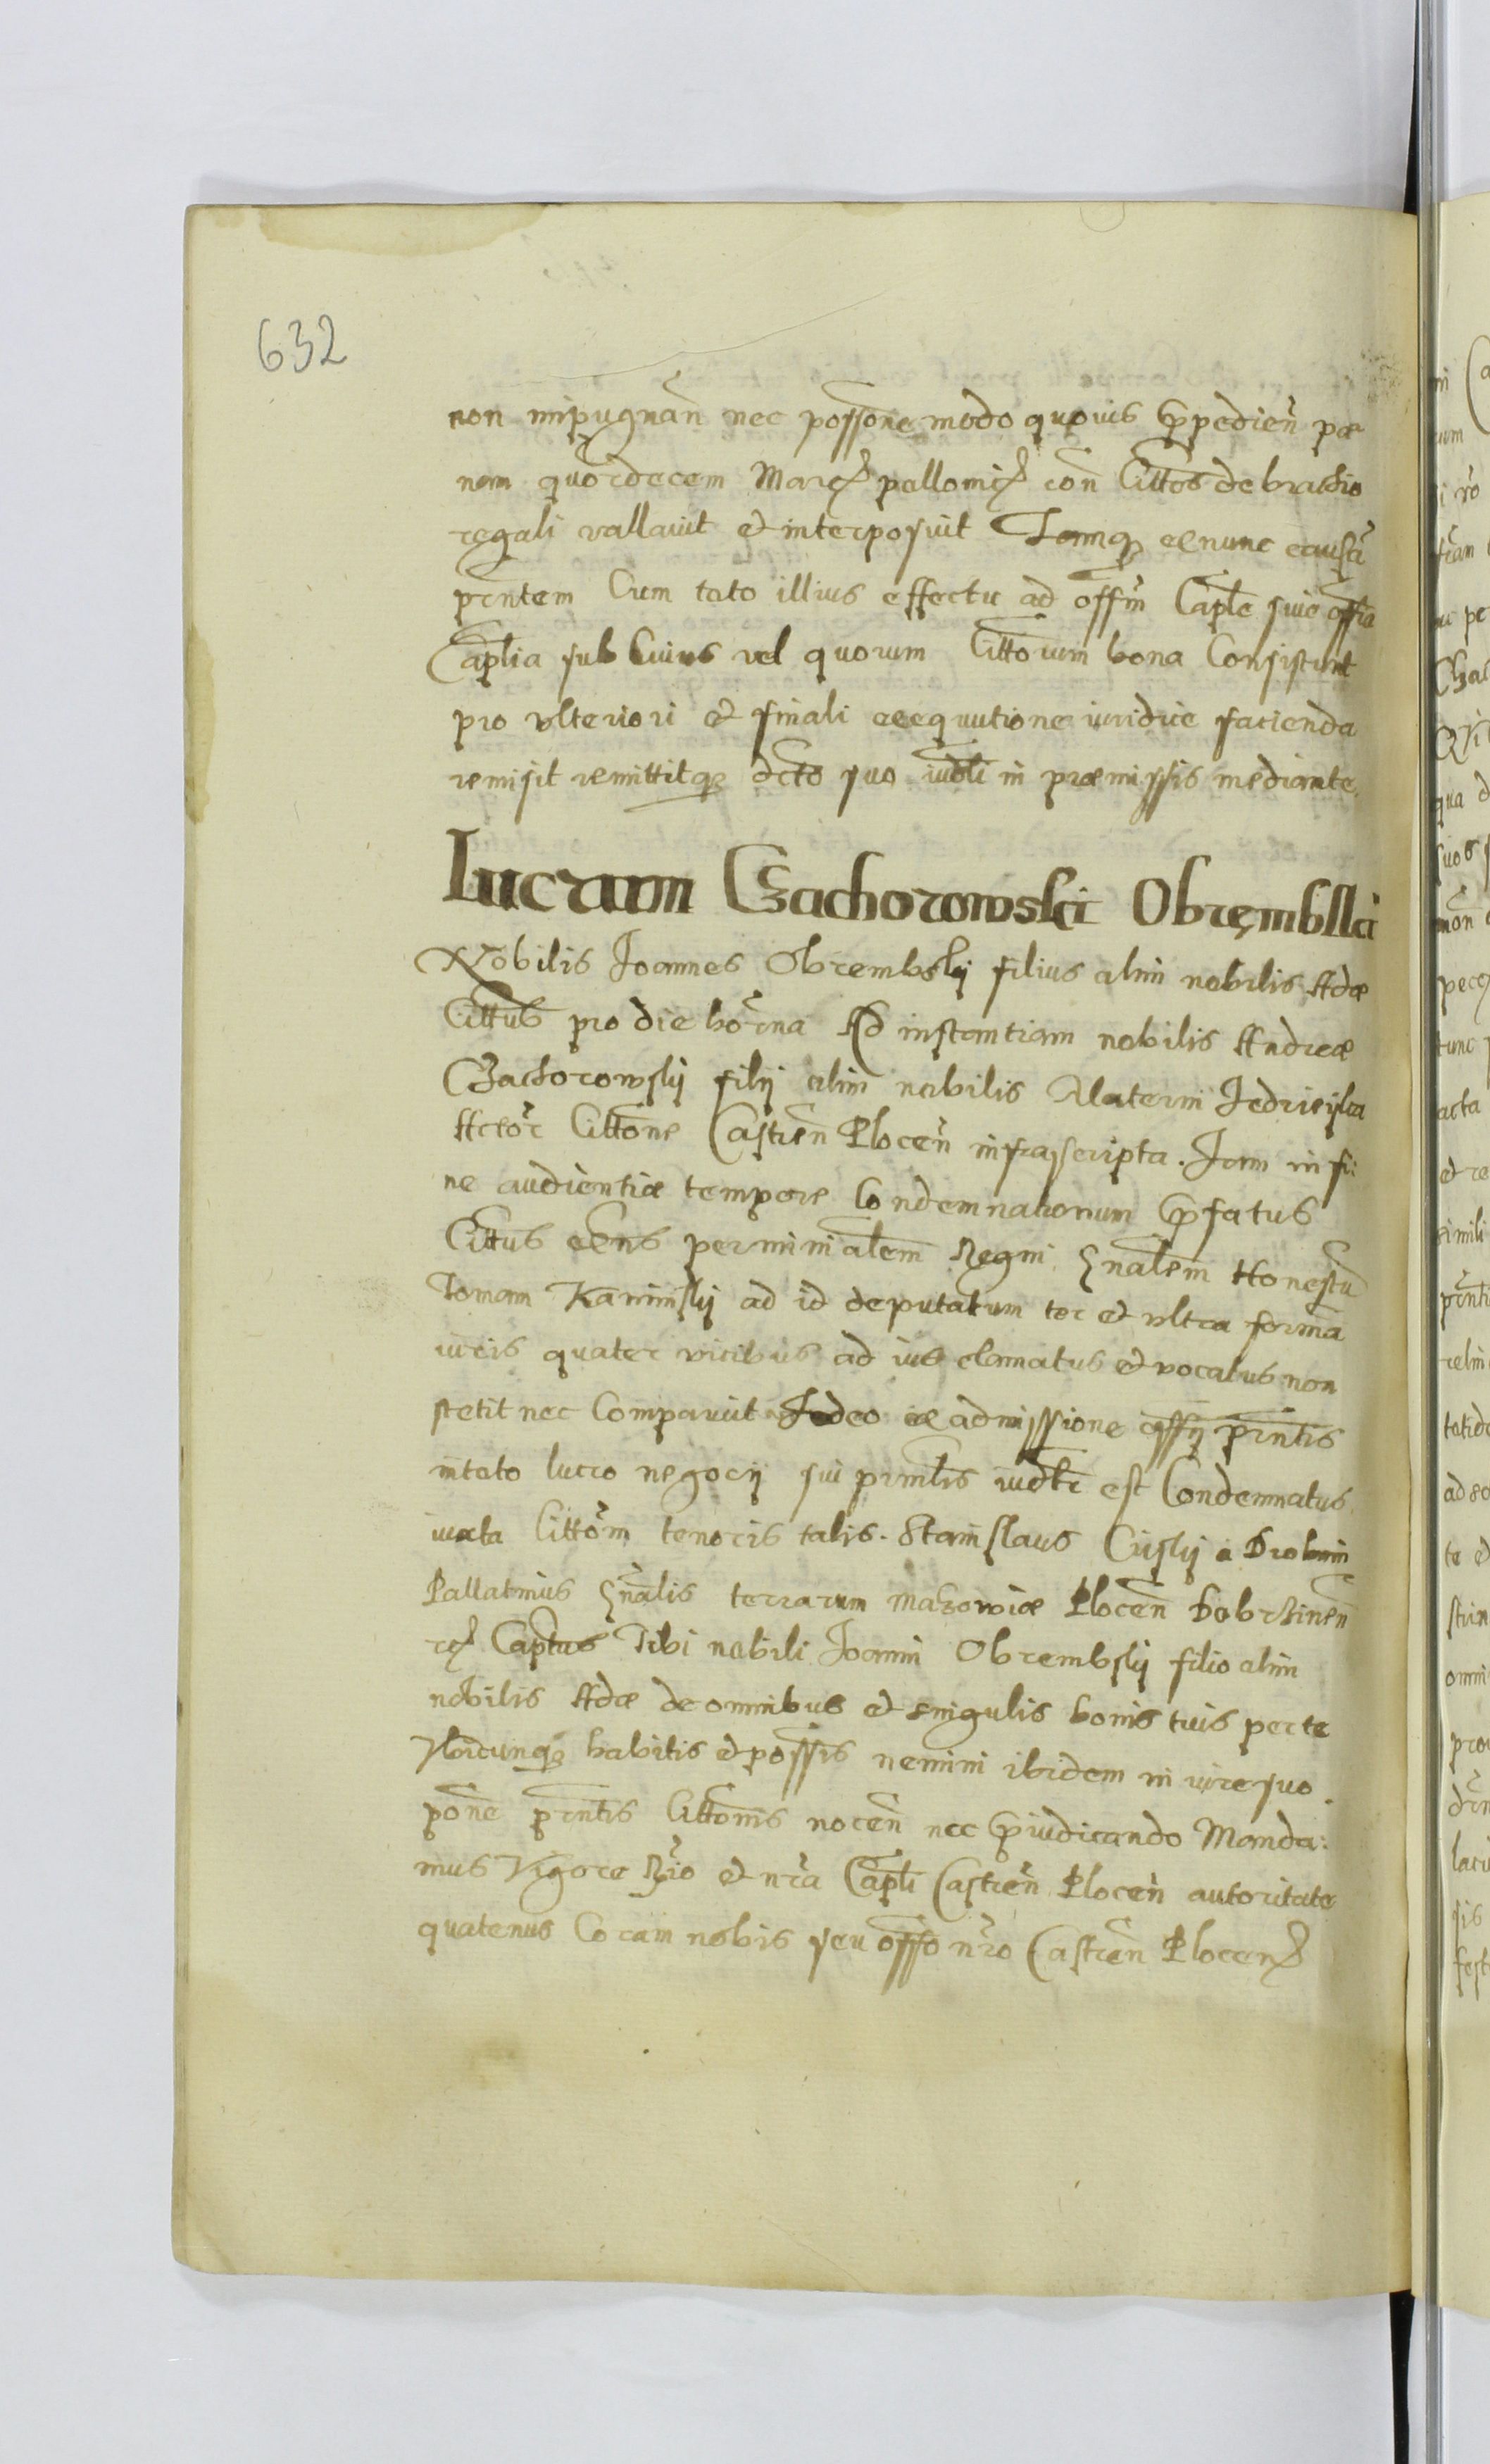 632
non impugnan̄ nec possone modo quouis p̄pedien̄ pœ
nam quordecem Marcꝭ pallonicꝭ con̄ Cittos de brachio
regali vallauit et interposuit Iamqꝫ ex nunc causā
prntem Cum toto illius effectu ad offm̄ Captle siue offia
Captlia sub Cuius vel quorum Cittorum bona Consistunt
pro vlteriori et finali exequutione iuridice facienda
remisit remittitqꝫ dcto suo iudtli in præmissis mediante.
Lucrum Czachorowski Obrembski
Nobilis Ioannes Obrembskij filius alim nobilis Adæ
Cittus pro die hōrna Ad instantiam nobilis Andreæ
Czachorowskij filij alim nobilis Materni
Actōr Cittone Castren̄ Plocen̄ infrascripta. Iam in fi:
ne audientiæ tempore Condemnationum p̄fatus
Cittus per minialem Regni Gnalem Honestū
Tomam Kaminskij ad id deputatum ter et vltra formā
iuris quater vicibus ad ius clamatus et vocatus non
stetit nec Comparuit Ideo ex admissione offij prntis
in toto lucro negocij sui prinlis iudtr est Condemnatus
iuxta Cittom̄ tenoris talis. Stanislaus Criskij a Drobnin
Pallatinus Gnalis terrarum Mazowiæ Plocen̄ Dobrzinen̄
rcꝭ Captus Tibi nobili Ioanni Obrembskij filio alim
nobilis Adæ de omnibus et singulis bonis tuis per te
Vbicunqꝫ habitis et possis nemini ibidem in iure suo
pōne prntis Cittonis nocen̄ nec p̄iudicando Manda:
mus Vigore Rgio et nrā Captli Castren̄ Plocen̄ autoritate
quatenus Coram nobis seu offo nrō Castren̄ Plocenꝭ